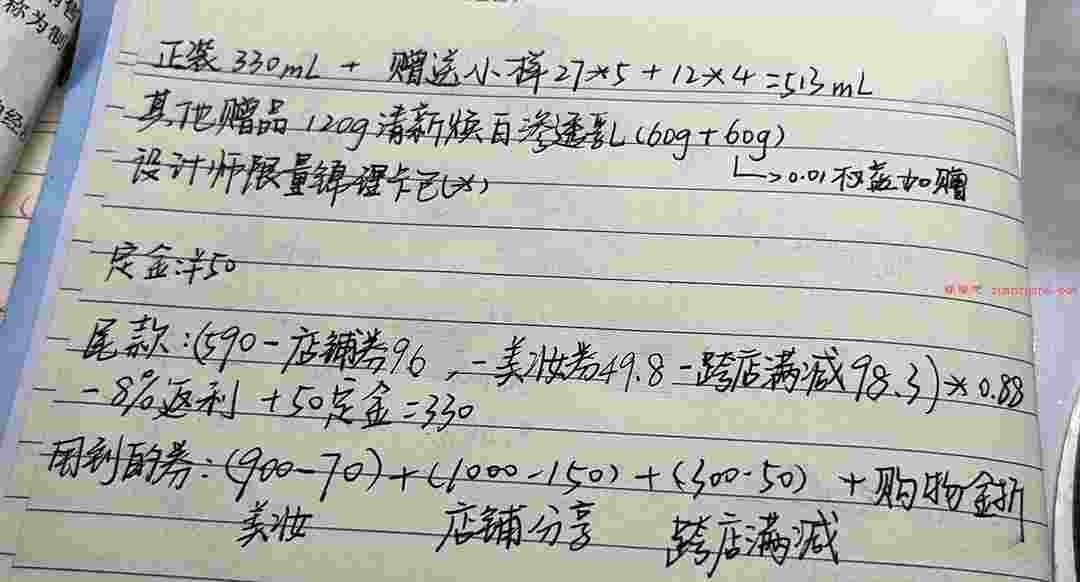 正装330mL + 赠送小样27×5+12×4=513mL
其他赠品 120g清新焕白渗透乳(60g+60g)
↳0.01权益加赠
设计师限量锦鲤卡包(×)
定金:¥50
尾款:(590-店铺券96,-美妆券49.8-跨店满减98.3)×0.88
-8%返利 +50定金=330
用到的券:(900-70)+(1000-150)+(300-50) +购物金折
美妆 店铺分享 跨店满减